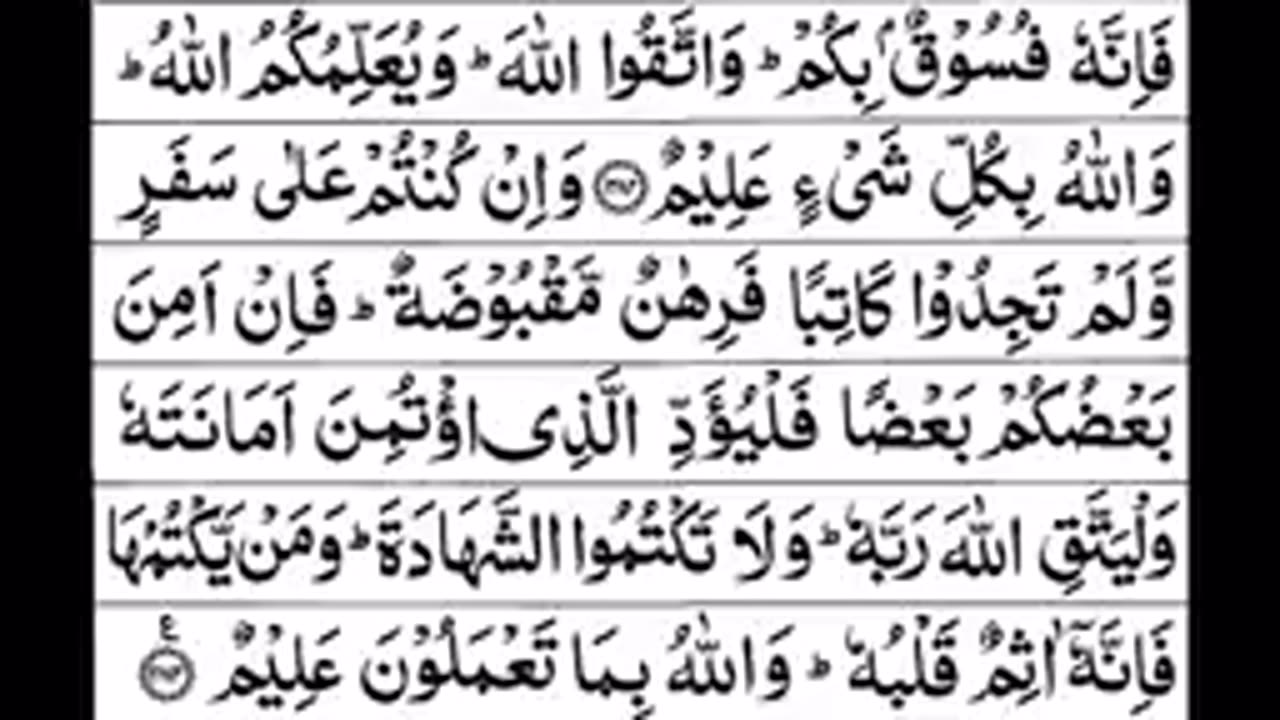 فَاِنَّهٗ فُسُوْقٌۢ بِكُمْ ؕ وَاتَّقُوا اللّٰهَ ؕ وَيُعَلِّمُكُمُ اللّٰهُ ؕ
وَاللّٰهُ بِكُلِّ شَىْءٍ عَلِيْمٌ ﴿۲۸۲﴾ وَاِنْ كُنْتُمْ عَلٰى سَفَرٍ
وَّلَمْ تَجِدُوْا كَاتِبًا فَرِهٰنٌ مَّقْبُوْضَةٌ ؕ فَاِنْ اَمِنَ
بَعْضُكُمْ بَعْضًا فَلْيُؤَدِّ الَّذِى اؤْتُمِنَ اَمَانَتَهٗ
وَلْيَتَّقِ اللّٰهَ رَبَّهٗ ؕ وَلَا تَكْتُمُوا الشَّهَادَةَ ؕ وَمَنْ يَّكْتُمْهَا
فَاِنَّهٗۤ اٰثِمٌ قَلْبُهٗ ؕ وَاللّٰهُ بِمَا تَعْمَلُوْنَ عَلِيْمٌ ﴿۲۸۳﴾ ع